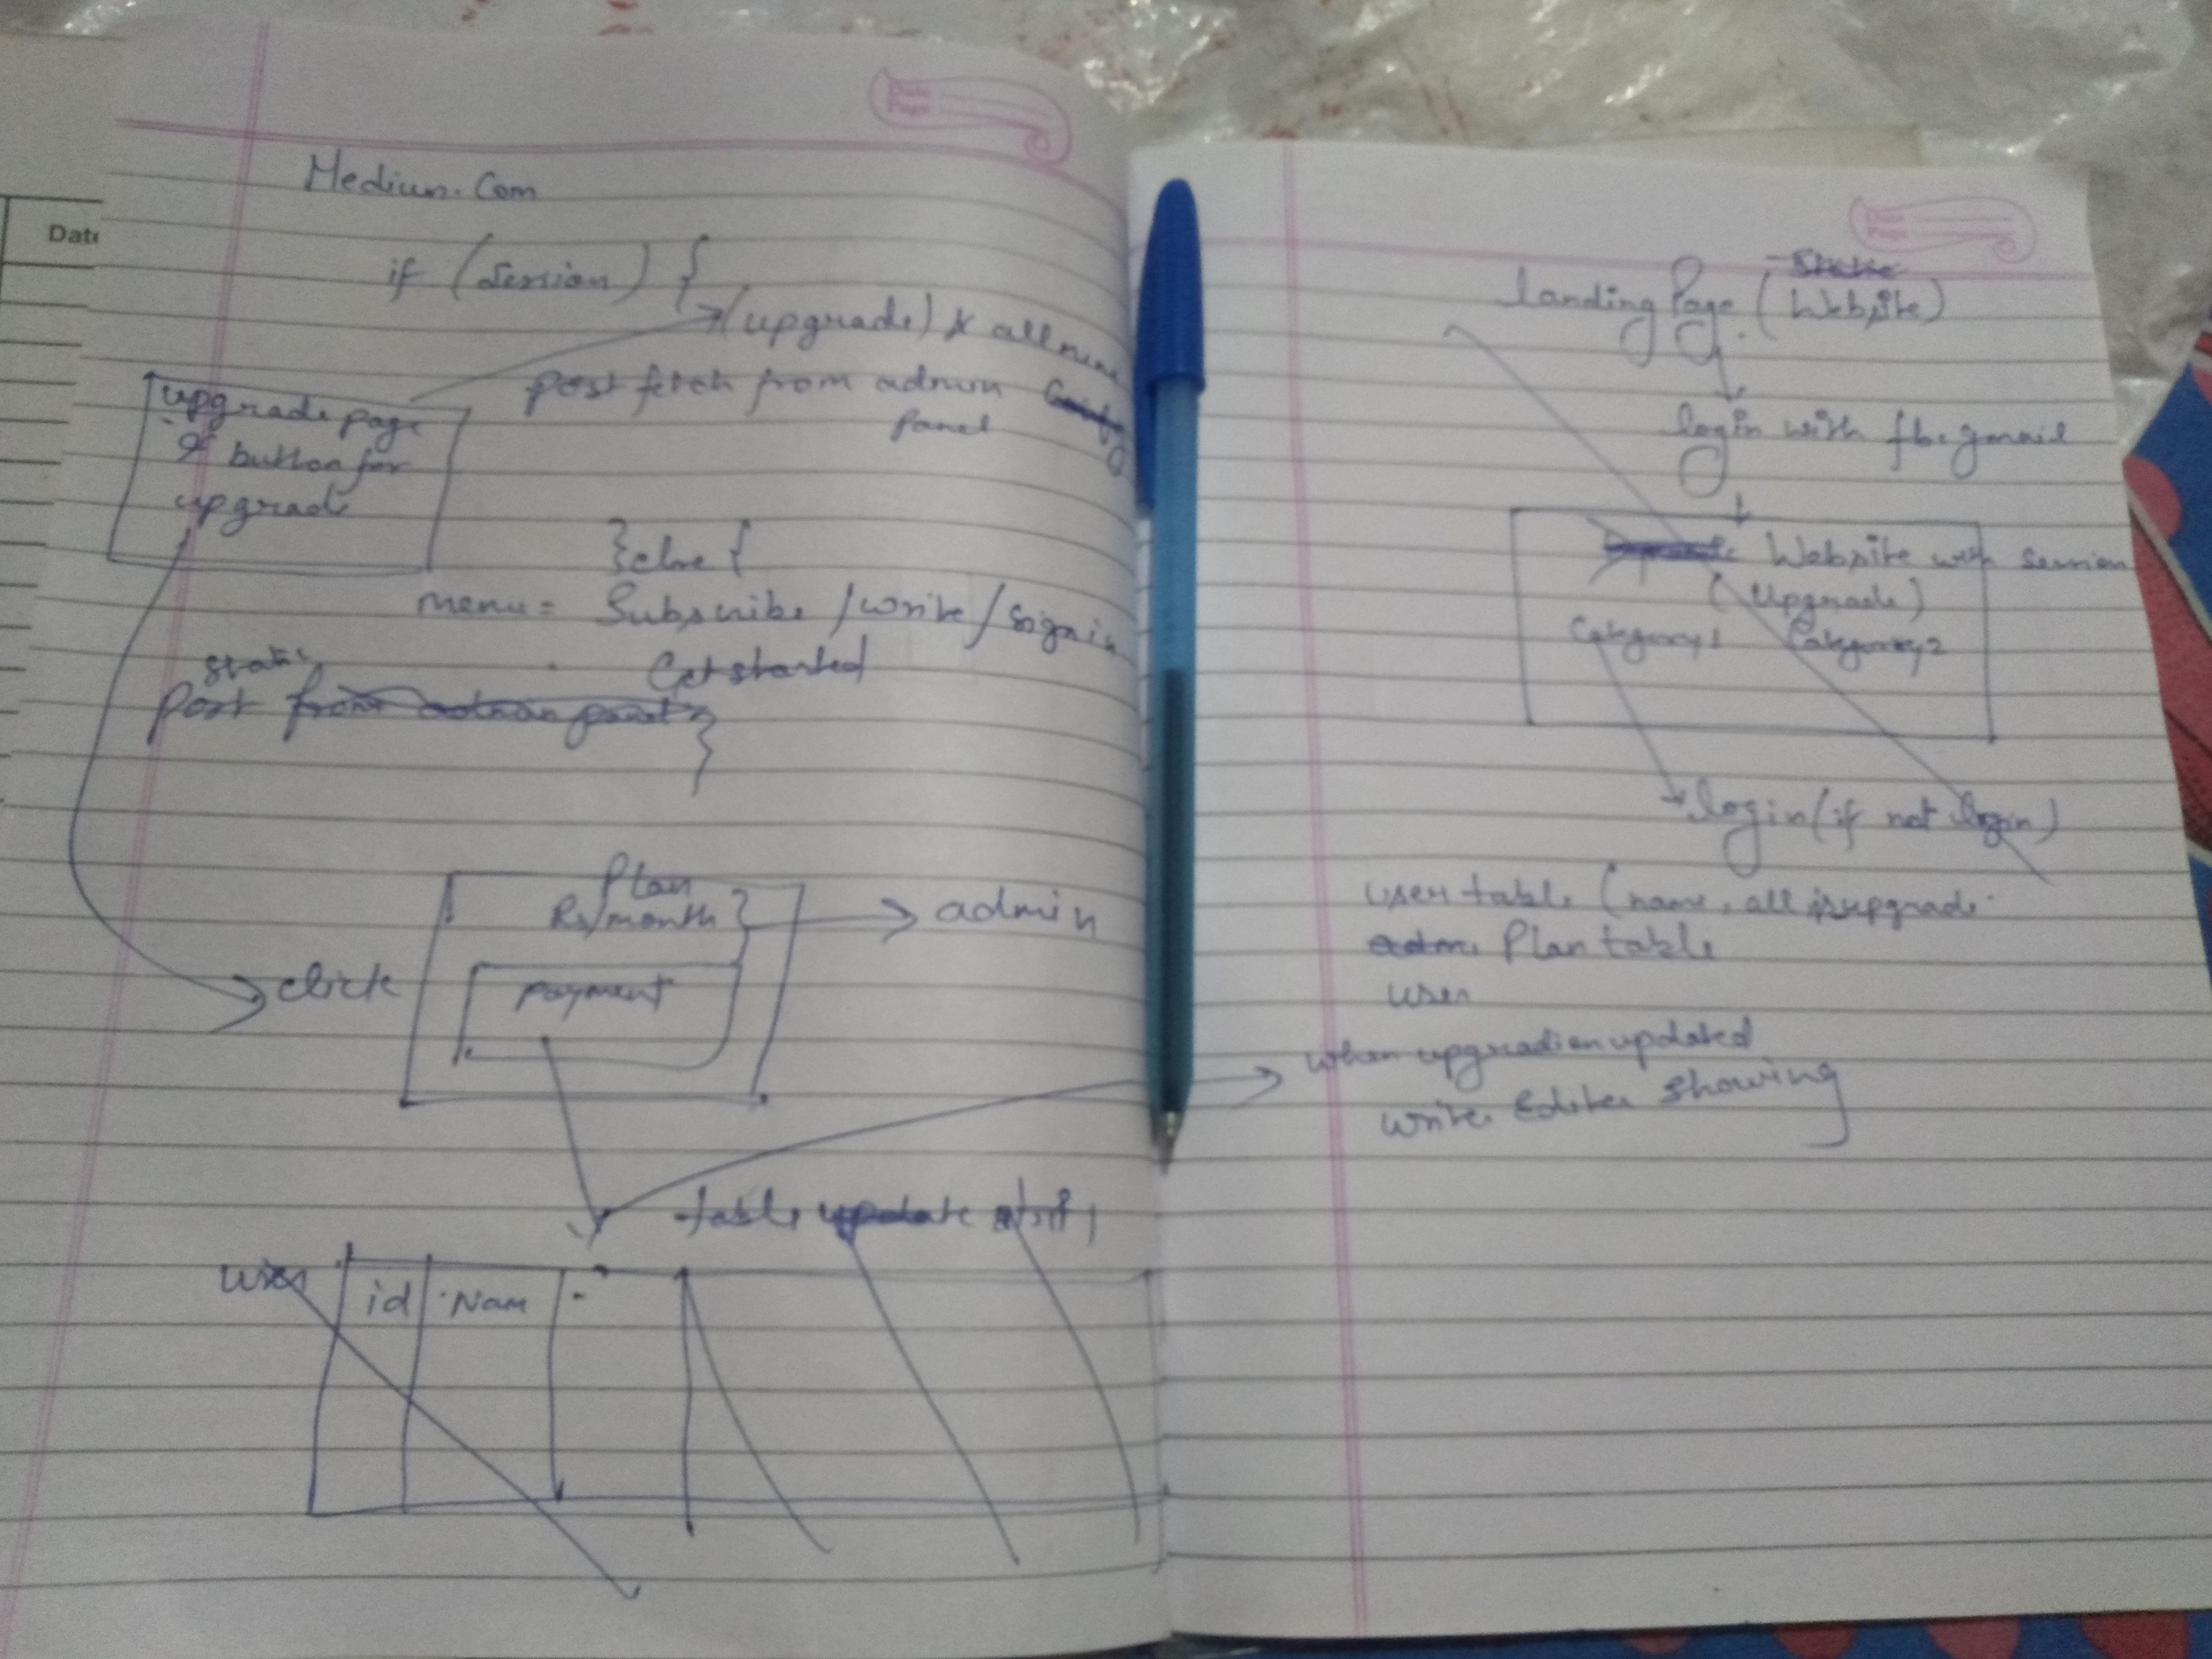 Date
Date
Page
Medium.Com
if (Session) {
(upgrade) & all menu
post fetch from admin
panel
upgrade page
& button for
upgrade
} else {
menu = Subscribe /write/Sign in
Get started
static
Post from admin panel }
Plan
Rs/month } admin
click
payment
table update
user id Nam
Date
Page
Static
landing Page (Website)
login with fb. gmail
Website with Session
(Upgrade)
Category1 Category2
login (if not login)
user table (name, all isupgrade
adm. Plan table
user
when upgradion updated
write Editer showing